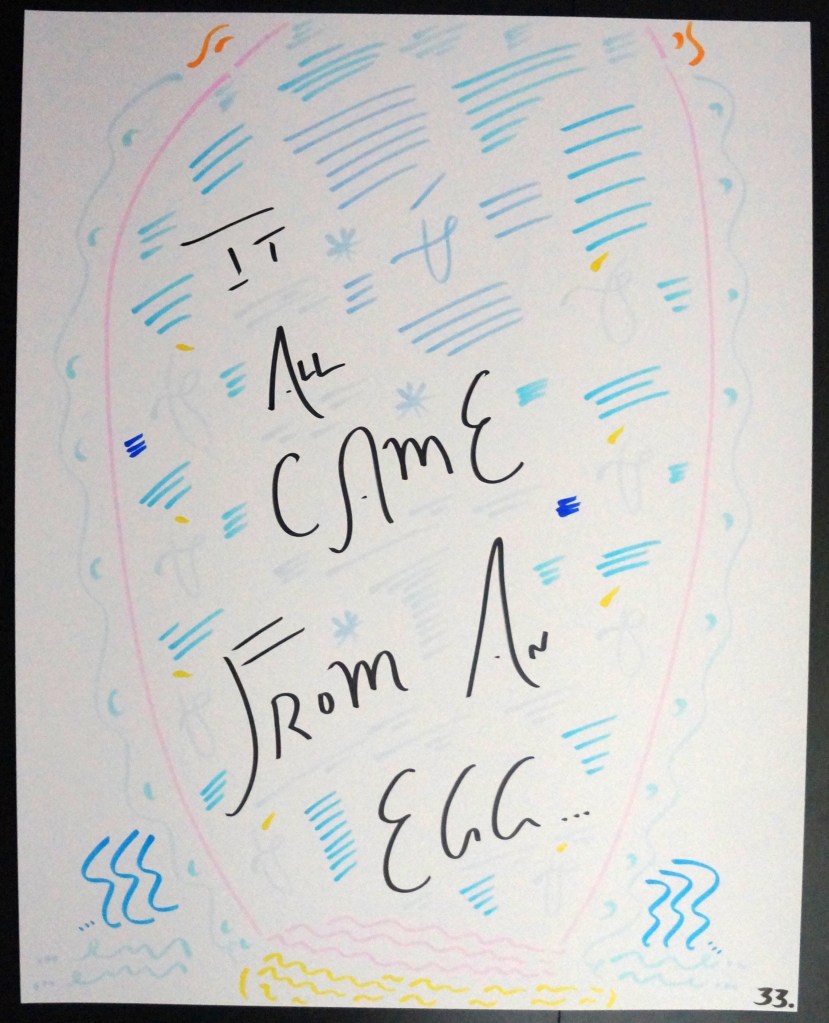 IT
ALL
CAME
FROM AN
EGG...
33.